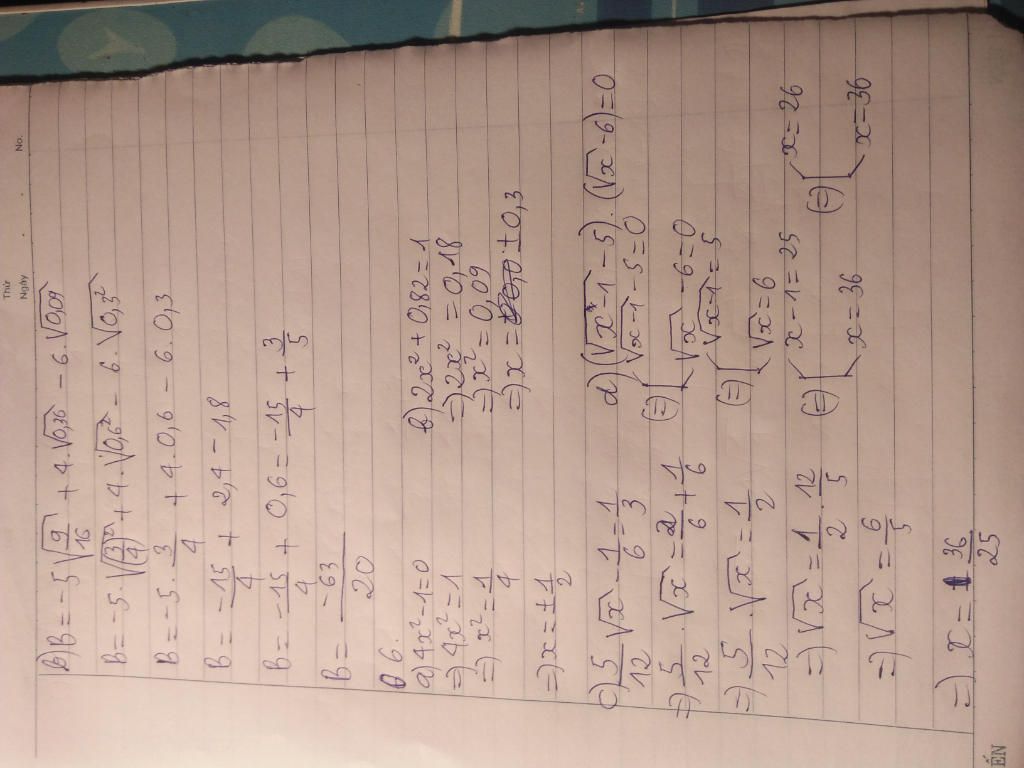 Thứ
Ngày
No.
b) B = -5√(9/16) + 4.√0,36 - 6.√0,09
B = -5.√(3/4)² + 4.√0,6² - 6.√0,3²
B = -5. 3/4 + 4.0,6 - 6.0,3
B = -15/4 + 2,4 - 1,8
B = -15/4 + 0,6 = -15/4 + 3/5
B = -63/20
B 6.
a) 4x² - 1 = 0
=) 4x² = 1
=) x² = 1/4
=) x = ± 1/2
b) 2x² + 0,82 = 1
=) 2x² = 0,18
=) x² = 0,09
=) x = ± 0,3
c) 5/12 √x - 1/6 = 1/3
=) 5/12 . √x = 2/6 + 1/6
=) 5/12 . √x = 1/2
=) √x = 1/2 . 12/5
=) √x = 6/5
=) x = 36/25
d) (√(x-1) - 5).(√x - 6) = 0
(=) [ √(x-1) - 5 = 0
√x - 6 = 0
(=) [ √(x-1) = 5
√x = 6
(=) [ x - 1 = 25
x = 36
(=) [ x = 26
x = 36
ẾN